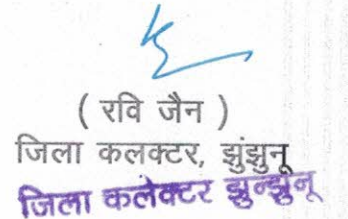 ( रवि जैन )
जिला कलक्टर, झुंझुनू
जिला कलेक्टर झुन्झुनू